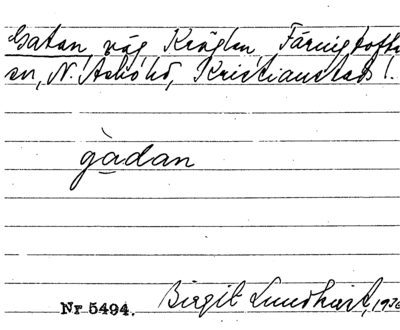 Gatan, väg Kräglen, Färingtofta
sn, N. Åsbo hd, Kristianstads l.
gàdan
Nr 5494. Birgit Lundkvist, 1936